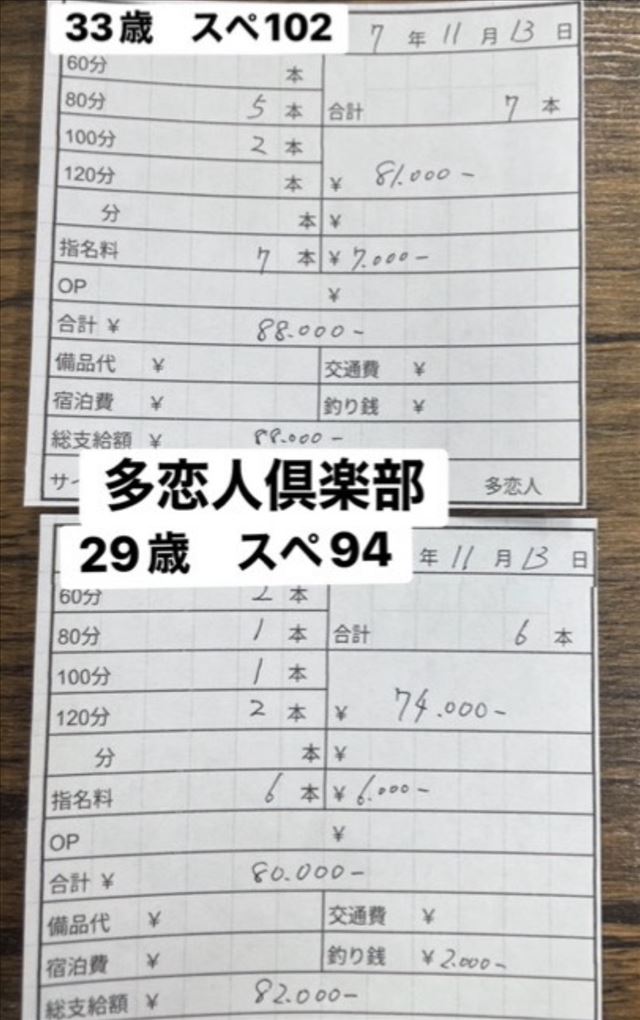 33歳 スペ102
7 年 11 月 13 日
60分 本
80分 5 本 合計 7 本
100分 2 本
120分 本 ¥ 81.000-
分 本 ¥
指名料 7 本 ¥ 7.000-
OP ¥
合計 ¥ 88.000-
備品代 ¥ 交通費 ¥
宿泊費 ¥ 釣り銭 ¥
総支給額 ¥ 88.000-
サイ 多恋人
多恋人倶楽部
29歳 スペ94
年 11 月 13 日
60分 2 本
80分 1 本 合計 6 本
100分 1 本
120分 2 本 ¥ 74.000-
分 本 ¥
指名料 6 本 ¥ 6.000-
OP ¥
合計 ¥ 80.000-
備品代 ¥ 交通費 ¥
宿泊費 ¥ 釣り銭 ¥ 2.000-
総支給額 ¥ 82.000-